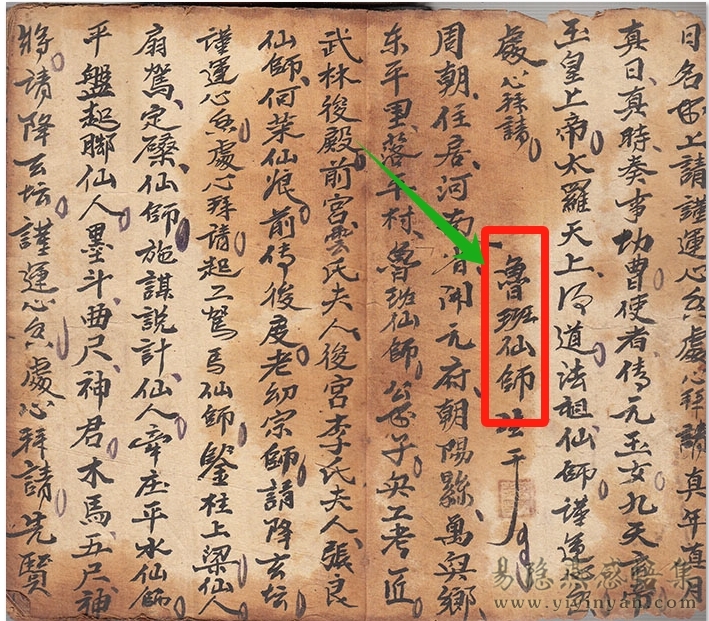 日名香上請謹運心香處心拜請真年真月
真日真時奏事功曹使者傳元玉女九天
玉皇上帝太羅天上得道法祖仙師謹運心香
處心拜請
魯班仙師
周朝住居河南省開元府朝陽縣萬興鄉
东平里落平村魯班仙師公母子矢工考匠
武林後殿前宮雲氏夫人後宮李氏夫人張良
仙師何葉仙娘前傳後度老幼宗師請降玄坛
謹運心香處心拜請起工駕馬仙師鑒柱上梁仙人
扇駕定磉仙師施謀說計仙人牵庄平水仙師
平盤起脚仙人墨斗曲尺神君木馬五尺神
將請降玄坛謹運心香處心拜請先賢
易隐燕感悟集
www.yiyinyan.com